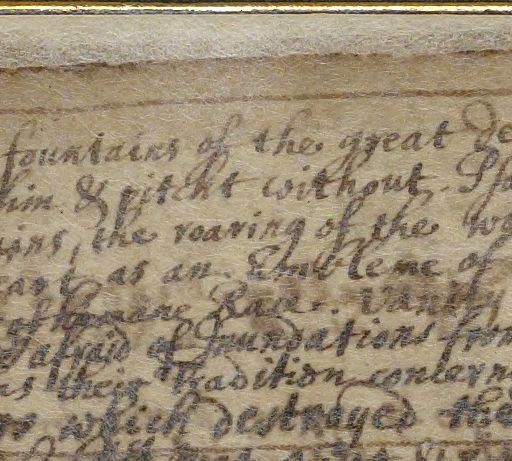 fountains of the great de
him & pitcht without. Psa
ins, the roaring of the wa
east as an Embleme of
of humane Race. Vanity
afraid of Inundations from
as their Tradition concerni
which destroyed the